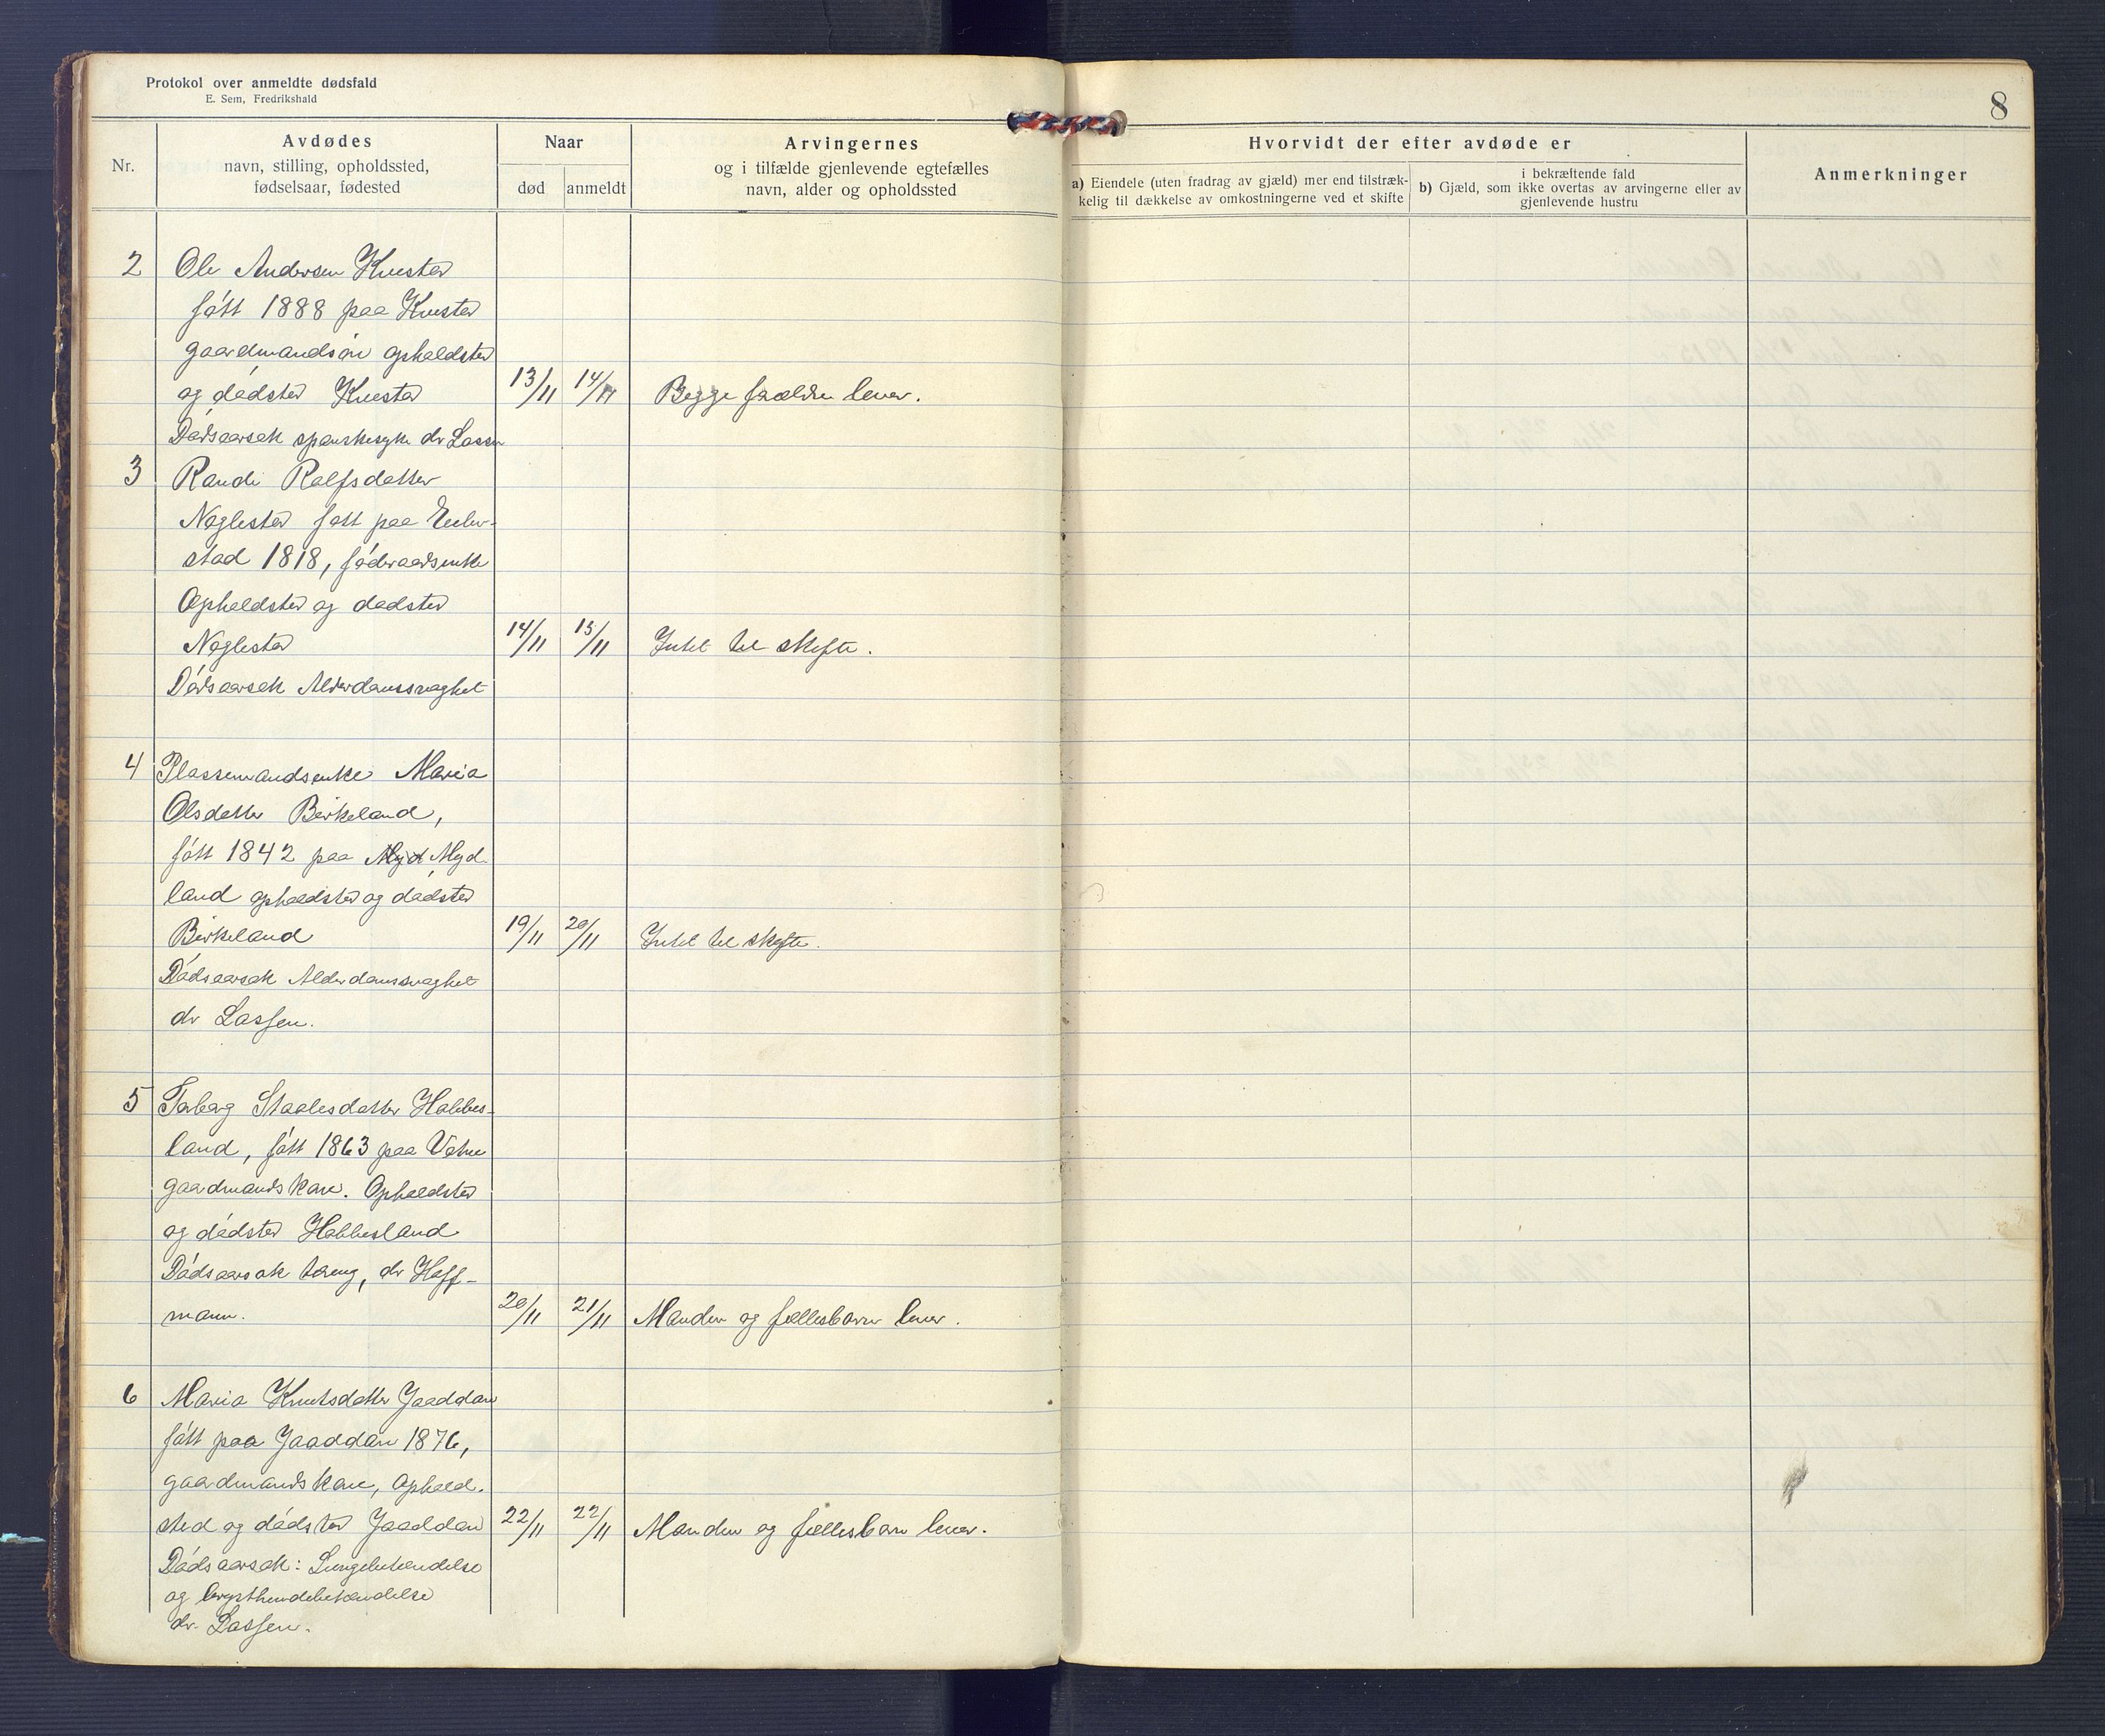 Protokol over anmeldte dødsfald
E. Sem, Fredrikshald
8
Nr.
Avdødes
navn, stilling, opholdssted,
fødselsaar, fødested
Naar
død
anmeldt
Arvingernes
og i tilfælde gjenlevende egtefælles
navn, alder og opholdssted
Hvorvidt der efter avdøde er
a) Eiendele (uten fradrag av gjæld) mer end tilstræk-
kelig til dækkelse av omkostningerne ved et skifte
i bekræftende fald
b) Gjæld, som ikke overtas av arvingerne eller av
gjenlevende hustru
Anmerkninger
2 Ole Andersen Kvested
føtt 1888 paa Kvested
gaardmandsøn opholdsted
og dødsted Kvested 13/11 14/11 Begge forældre lever.
Dødsaarsak spanskesyke dr Lassen
3 Randi Rolfsdatter
Neglested føtt paa
stad 1818, føderaadsenke
Opholdsted og dødsted
Neglested 14/11 15/11 Intet til skifte.
Dødsaarsak Alderdomssvaghet
4 Plassemandsenke Maria
Olsdatter Birkeland,
føtt 1842 paa Myd Myd-
land opholdsted og dødsted
Birkeland 19/11 20/11 Intet til skifte.
Dødsaarsak Alderdomssvaghet
dr Lassen.
5 Torborg Staalesdatter Hobbes-
land, føtt 1863 paa Vatne
gaardmandskone. Opholdsted
og dødsted Hobbesland
Dødsaarsak tæring, dr Hoff-
mann. 20/11 21/11 Manden og fællesbarn lever.
6 Maria Knutsdatter Jaaddan
føtt paa Jaaddan 1876,
gaardmandskone, Ophold-
sted og dødsted Jaaddan 22/11 22/11 Manden og fællesbarn lever.
Dødsaarsak: Lungebetændelse
og brysthindebetændelse
dr. Lassen.